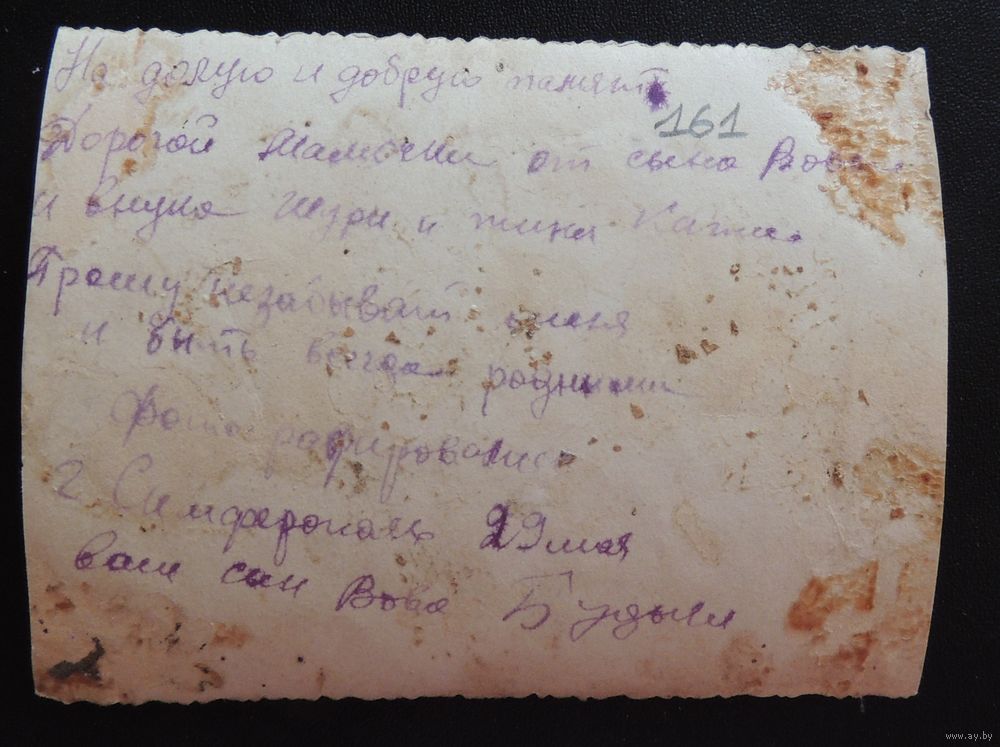 На долгую и добрую память
161
Дорогой Мамочки от сына Вовы
и внука Шури и жины Кати.
Прошу незабывать меня
и быть всегда родными
Фотографировались
г. Симферополь 29 мая
ваш сын Вова
www.ay.by